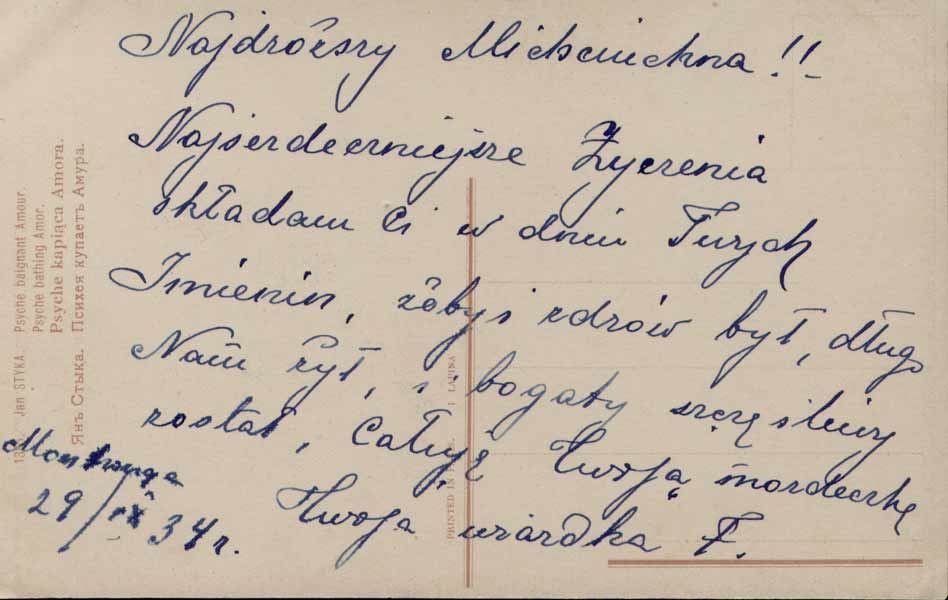 Najdrószszy Michciuchna!!
Najserdeczniejsze Życzenia
składam Ci w dniu Twych
Imienin, żóbyś zdrów był, długo
Nam żył, i bogaty szczęśliwy
został, Całuję Twoją mordeczkę
Twoja F.
29/IX 34 r.
Jan STYKA. Psyché baignant Amour.
Psyche bathing Amor.
Psyche kapiąca Amora.
Янъ Стыка. Психея купаетъ Амура.
PRINTED IN
LAPINA